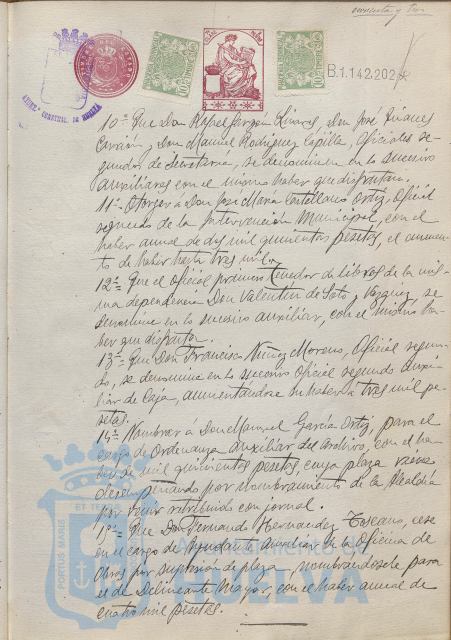 cincuenta y tres
B.1.142.202
10ª- Que Don Rafael Garzón Linares, Don José Liñanes
Carrión, y Don Manuel Rodríguez Capilla, Oficiales se-
gundos de Secretaría, se denominen en lo sucesivo
auxiliares con el mismo haber que disfrutan.
11ª- Otorgar á Don José María Castellano Ortiz, Oficial
segundo de la Intervención Municipal, con el
haber anual de dos mil quinientas pesetas, el aumen-
to de haber hasta tres mil.
12ª- Que el oficial primero Tenedor de libros de la mis-
ma dependencia Don Valentín de Soto y Vázquez, se
denomine en lo sucesivo auxiliar, con el mismo ha-
ber que disfruta.
13ª- Que Don Francisco Núñez Moreno, Oficial segun-
do, se denomine en lo sucesivo Oficial segundo auxi-
liar de Caja, aumentándose su haber á tres mil pe-
setas.
14ª- Nombrar á Don Manuel García Ortiz, para el
cargo de Ordenanza auxiliar del Archivo, con el ha-
ber de mil quinientas pesetas cuya plaza viene
desempeñando por nombramiento de la Alcaldía
por venir retribuido con jornal.
15ª- Que Don Fernando Hernandez Toscano, cese
en el cargo de Ayudante auxiliar de la Oficina de
Obras por supresión de plaza, nombrándosele para
el de Delineante Mayor, con el haber anual de
cuatro mil pesetas.
PORTUS MARIS
ET TE
Ayuntamiento de
HUELVA